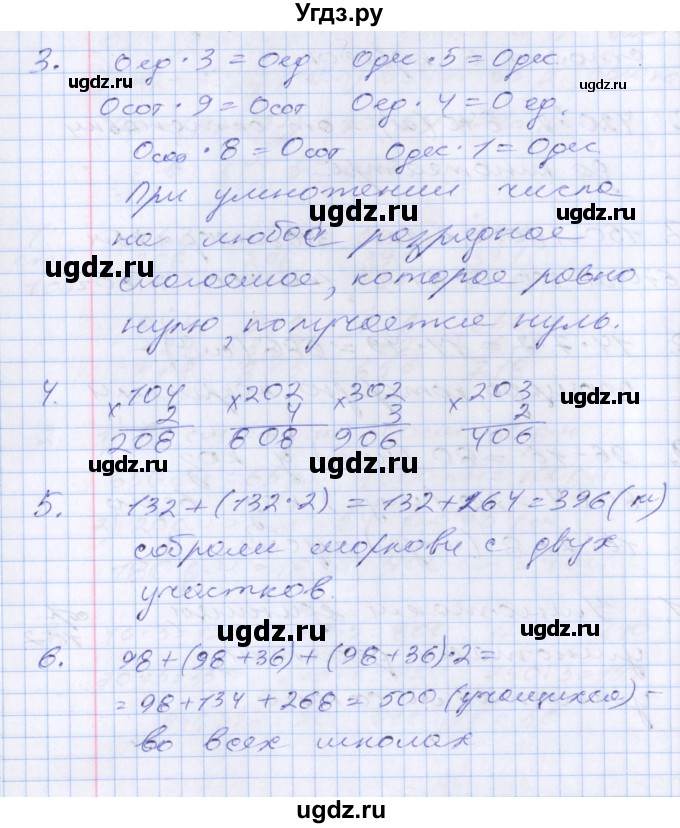 Угдз.ру
3. 0ед · 3 = 0ед 0дес · 5 = 0дес
ugdz.ru ugdz.ru
0сот · 9 = 0сот 0ед · 4 = 0 ед.
ugdz.ru
0сот · 8 = 0сот 0дес · 1 = 0дес
При умножении числа
ugdz.ru
на любое разрядное
ugdz.ru
слогаемое, которое равно
нулю, получается нуль.
4. ×104 ×202 ×302 ×203
2 4 3 2
208 808 906 406
ugdz.ru
ugdz.ru ugdz.ru
5. 132 + (132 · 2) = 132 + 264 = 396 (кг)
ugdz.ru
собрали моркови с двух
участков.
ugdz.ru ugdz.ru
6. 98 + (98 + 36) + (98 + 36) · 2 =
= 98 + 134 + 268 = 500 (учащихся) -
ugdz.ru
во всех школах
ugdz.ru
ugdz.ru